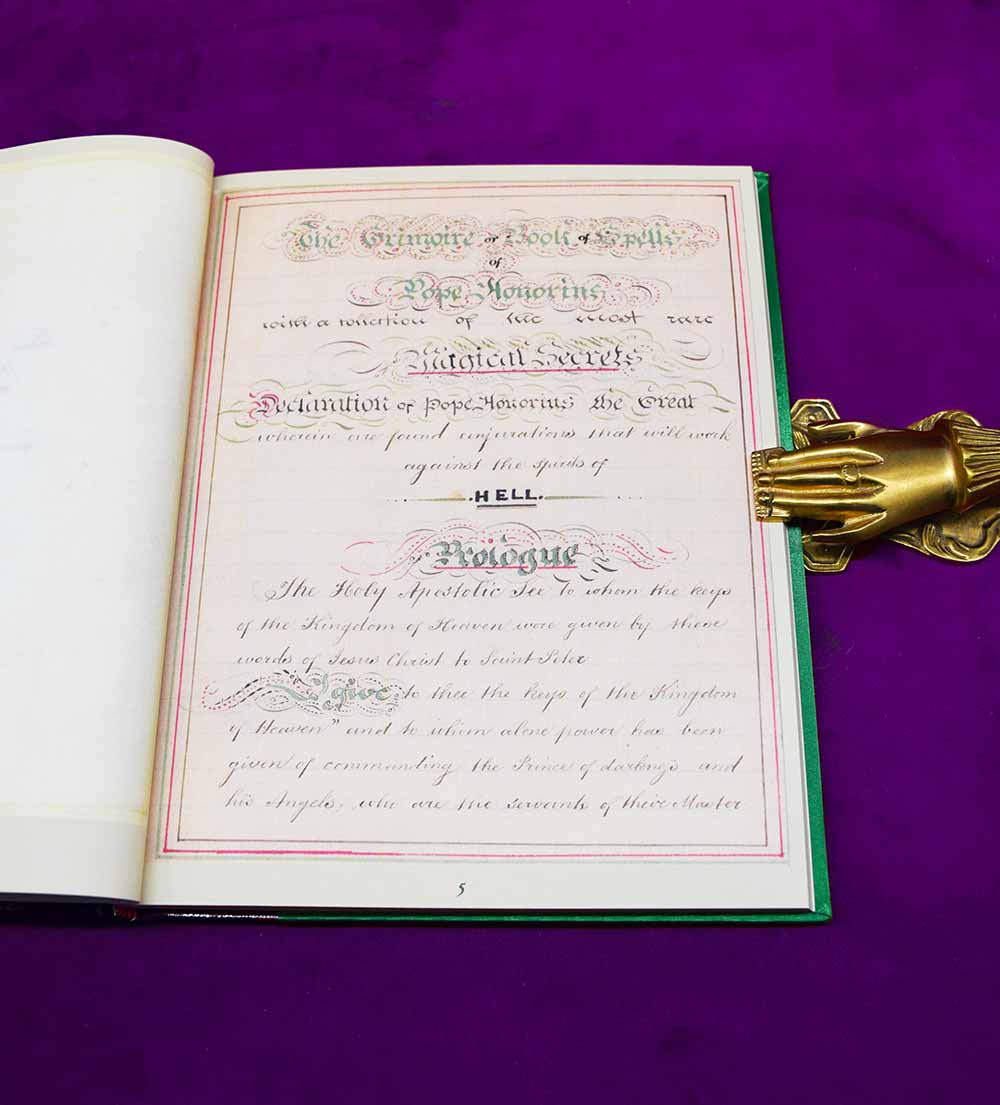 The Grimoire or Book of Spells
of
Pope Honorius
with a collection of the most rare
Magical Secrets
Declaration of Pope Honorius the Great
wherein are found conjurations that will work
against the spirits of
HELL.
Prologue
The Holy Apostolic See to whom the keys
of the Kingdom of Heaven were given by these
words of Jesus Christ to Saint Peter
I give to thee the keys of the Kingdom
of Heaven" and to whom alone power has been
given of commanding the Prince of darkness and
his Angels, who are the servants of their Master
5